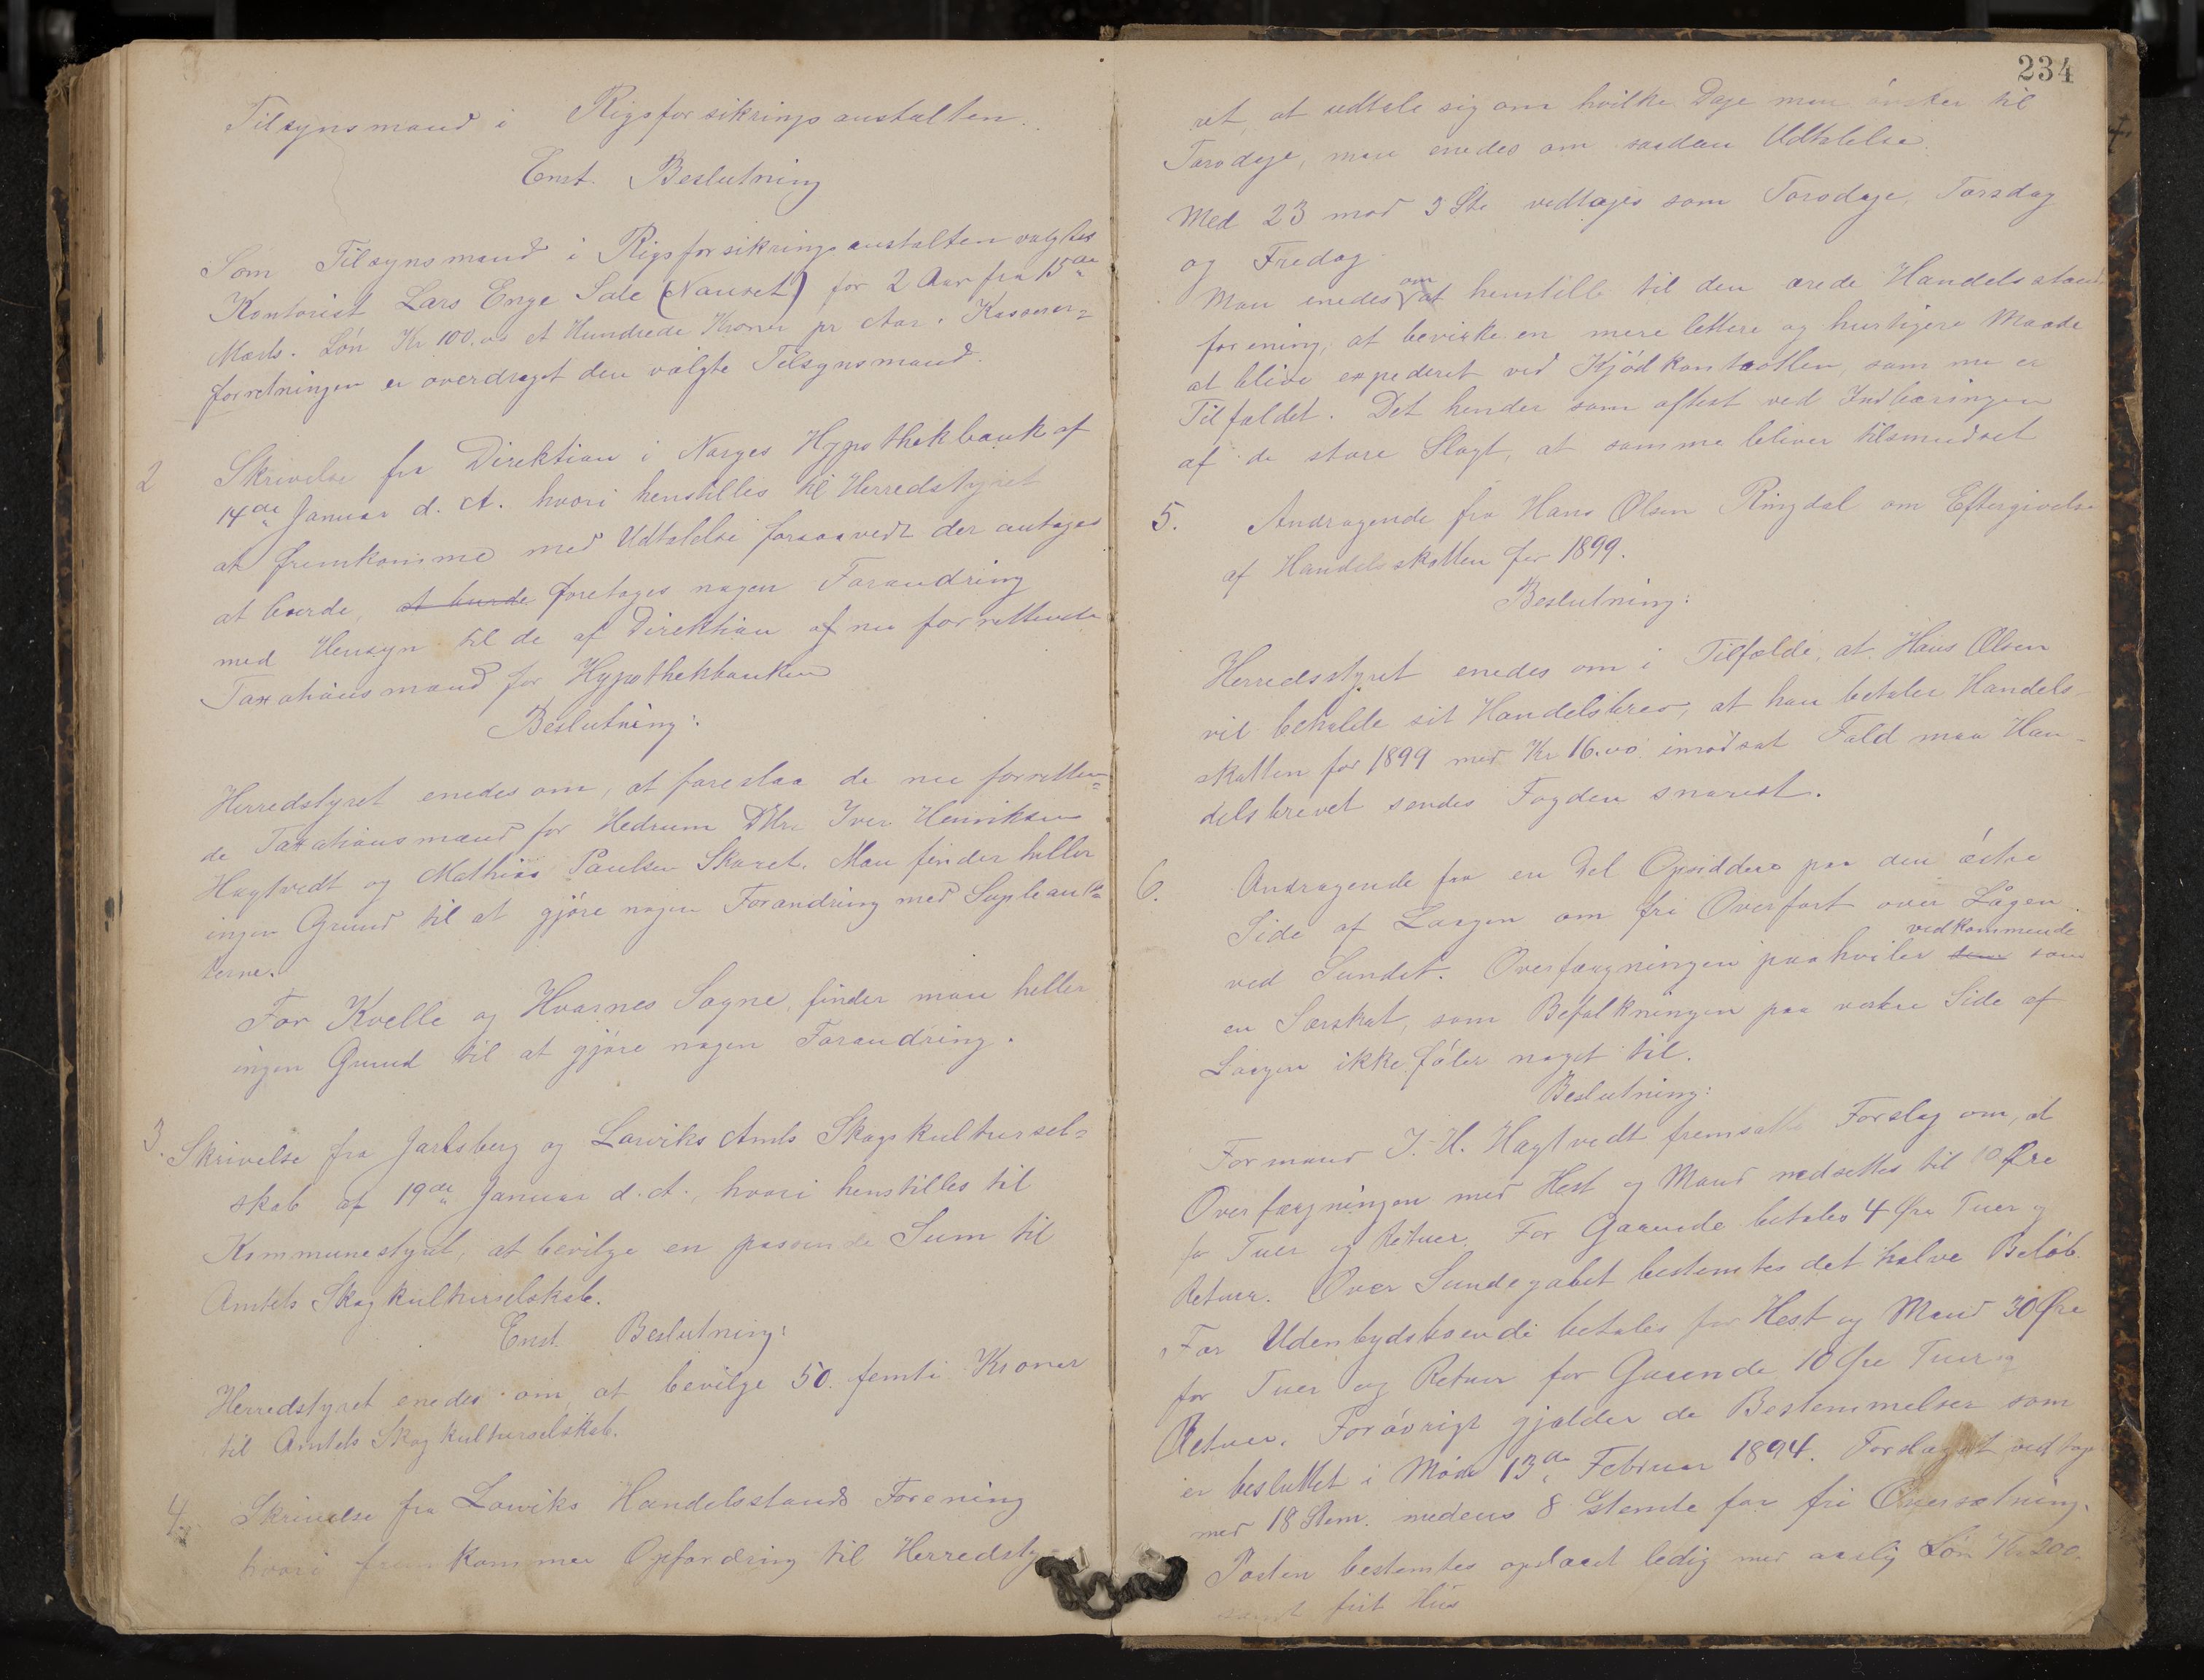 Tilsynsmand i Rigsforsikringsanstalten.
Enst. Beslutning
Som Tilsynsmand i Rigsforsikringsanstalten valgtes
Kontorist Lars Enge Sole (Nauset) for 2 Aar fra 15de
Marts. Løn Kr 100.00 et Hundrede Kroner pr Aar. Kasserer=
forretningen er overdraget den valgte Tilsynsmand.
2 Skrivelse fra Direktion i Norges Hypothekbank af
14de Januar d. A. hvori henstilles til Herredstyret
at fremkomme med Udtalelse forsaavedt der antages
at burde, at burde foretages nogen Forandring
med Hensyn til de af Direktion af nu forrettende
Taxationsmænd for Hypothekbanken
Beslutning:
Herredstyret enedes om, at foreslaa de nu forretten=
de Taxationsmænd for Hedrum DHr. Iver Henriksen
Hagtvedt og Mathias Paulsen Skaret. Man finder heller
ingen Grund til at gjøre nogen Forandring med Suplean=
terne.
For Kvelle og Hvarnes Sogne, finder man heller
ingen Grund til at gjøre nogen Forandring.
3. Skrivelse fra Jarlsberg og Larviks Amts Skogkultursel=
skab af 19de Januar d. A., hvori henstilles til
Kommunestyret, at bevilge en passende Sum til
Amtets Skogkulturselskab.
Enst. Beslutning:
Herredstyret enedes om, at bevilge 50. femti Kroner
til Amtets Skogkulturselskab.
4. Skrivelse fra Larviks Handelsstands Forening
hvori fremkommer Opfordring til Herredsty
234
ret, at udtale sig om hvilke Dage man ønsker til
Torvdage, man enedes om saadan Udtalelse.
Med 23 mod 3 Ste vedtages som Torvdage, Torsdag
og Fredag.
Man enedes om at henstille til den ærede Handelsstands
forening, at bevirke en mere lettere og hurtigere Maade
at blive expederet ved Kjødkontrollen, som nu er
Tilfældet. Det hender som oftest ved Indbæringen
af de store Slagt, at samme bliver tilsmudset
5. Andragende fra Hans Olsen Ringdal om Eftergivelse
af Handelsskatten for 1899.
Beslutning:
Herredsstyret enedes om i Tilfælde, at Hans Olsen
vil beholde sit Handelsbrev, at han betaler Handels-
skatten for 1899 med Kr 16.00 imodsat Fald maa Han-
delsbrevet sendes Fogden snarest.
6. Andragende fra en Del Opsiddere paa den østre
Side af Laagen om fri Overfart over Lågen
ved Sundet. Overfærgningen paahviler vedkommende som
en Særskat, som Befolkningen paa vestre Side af
Laagen ikke føler noget til.
Beslutning:
Formand I. H. Hagtvedt fremsatte Forslag om, at
Overfærgningen med Hest og Mand nedsettes til 10 Øre
for Tuer og Retuer. For Gaaende betales 4 Øre Tuer og
Retuer. Over Sundegabet bestemtes det halve Beløb.
For Udenbydsboende betales for Hest og Mand 30 Øre
for Tuer og Retuer for Gaaende 10 Øre Tuer og
Retuer. Forøvrigt gjælder de Bestemmelser som
er besluttet i Møde 13de Februar 1894. Forslaget vedtoges
med 18 Stem. medens 8 Stemte for fri Oversætning.
Posten bestemtes opslaaet ledig med aarlig Løn Kr 200.
samt frit Hus